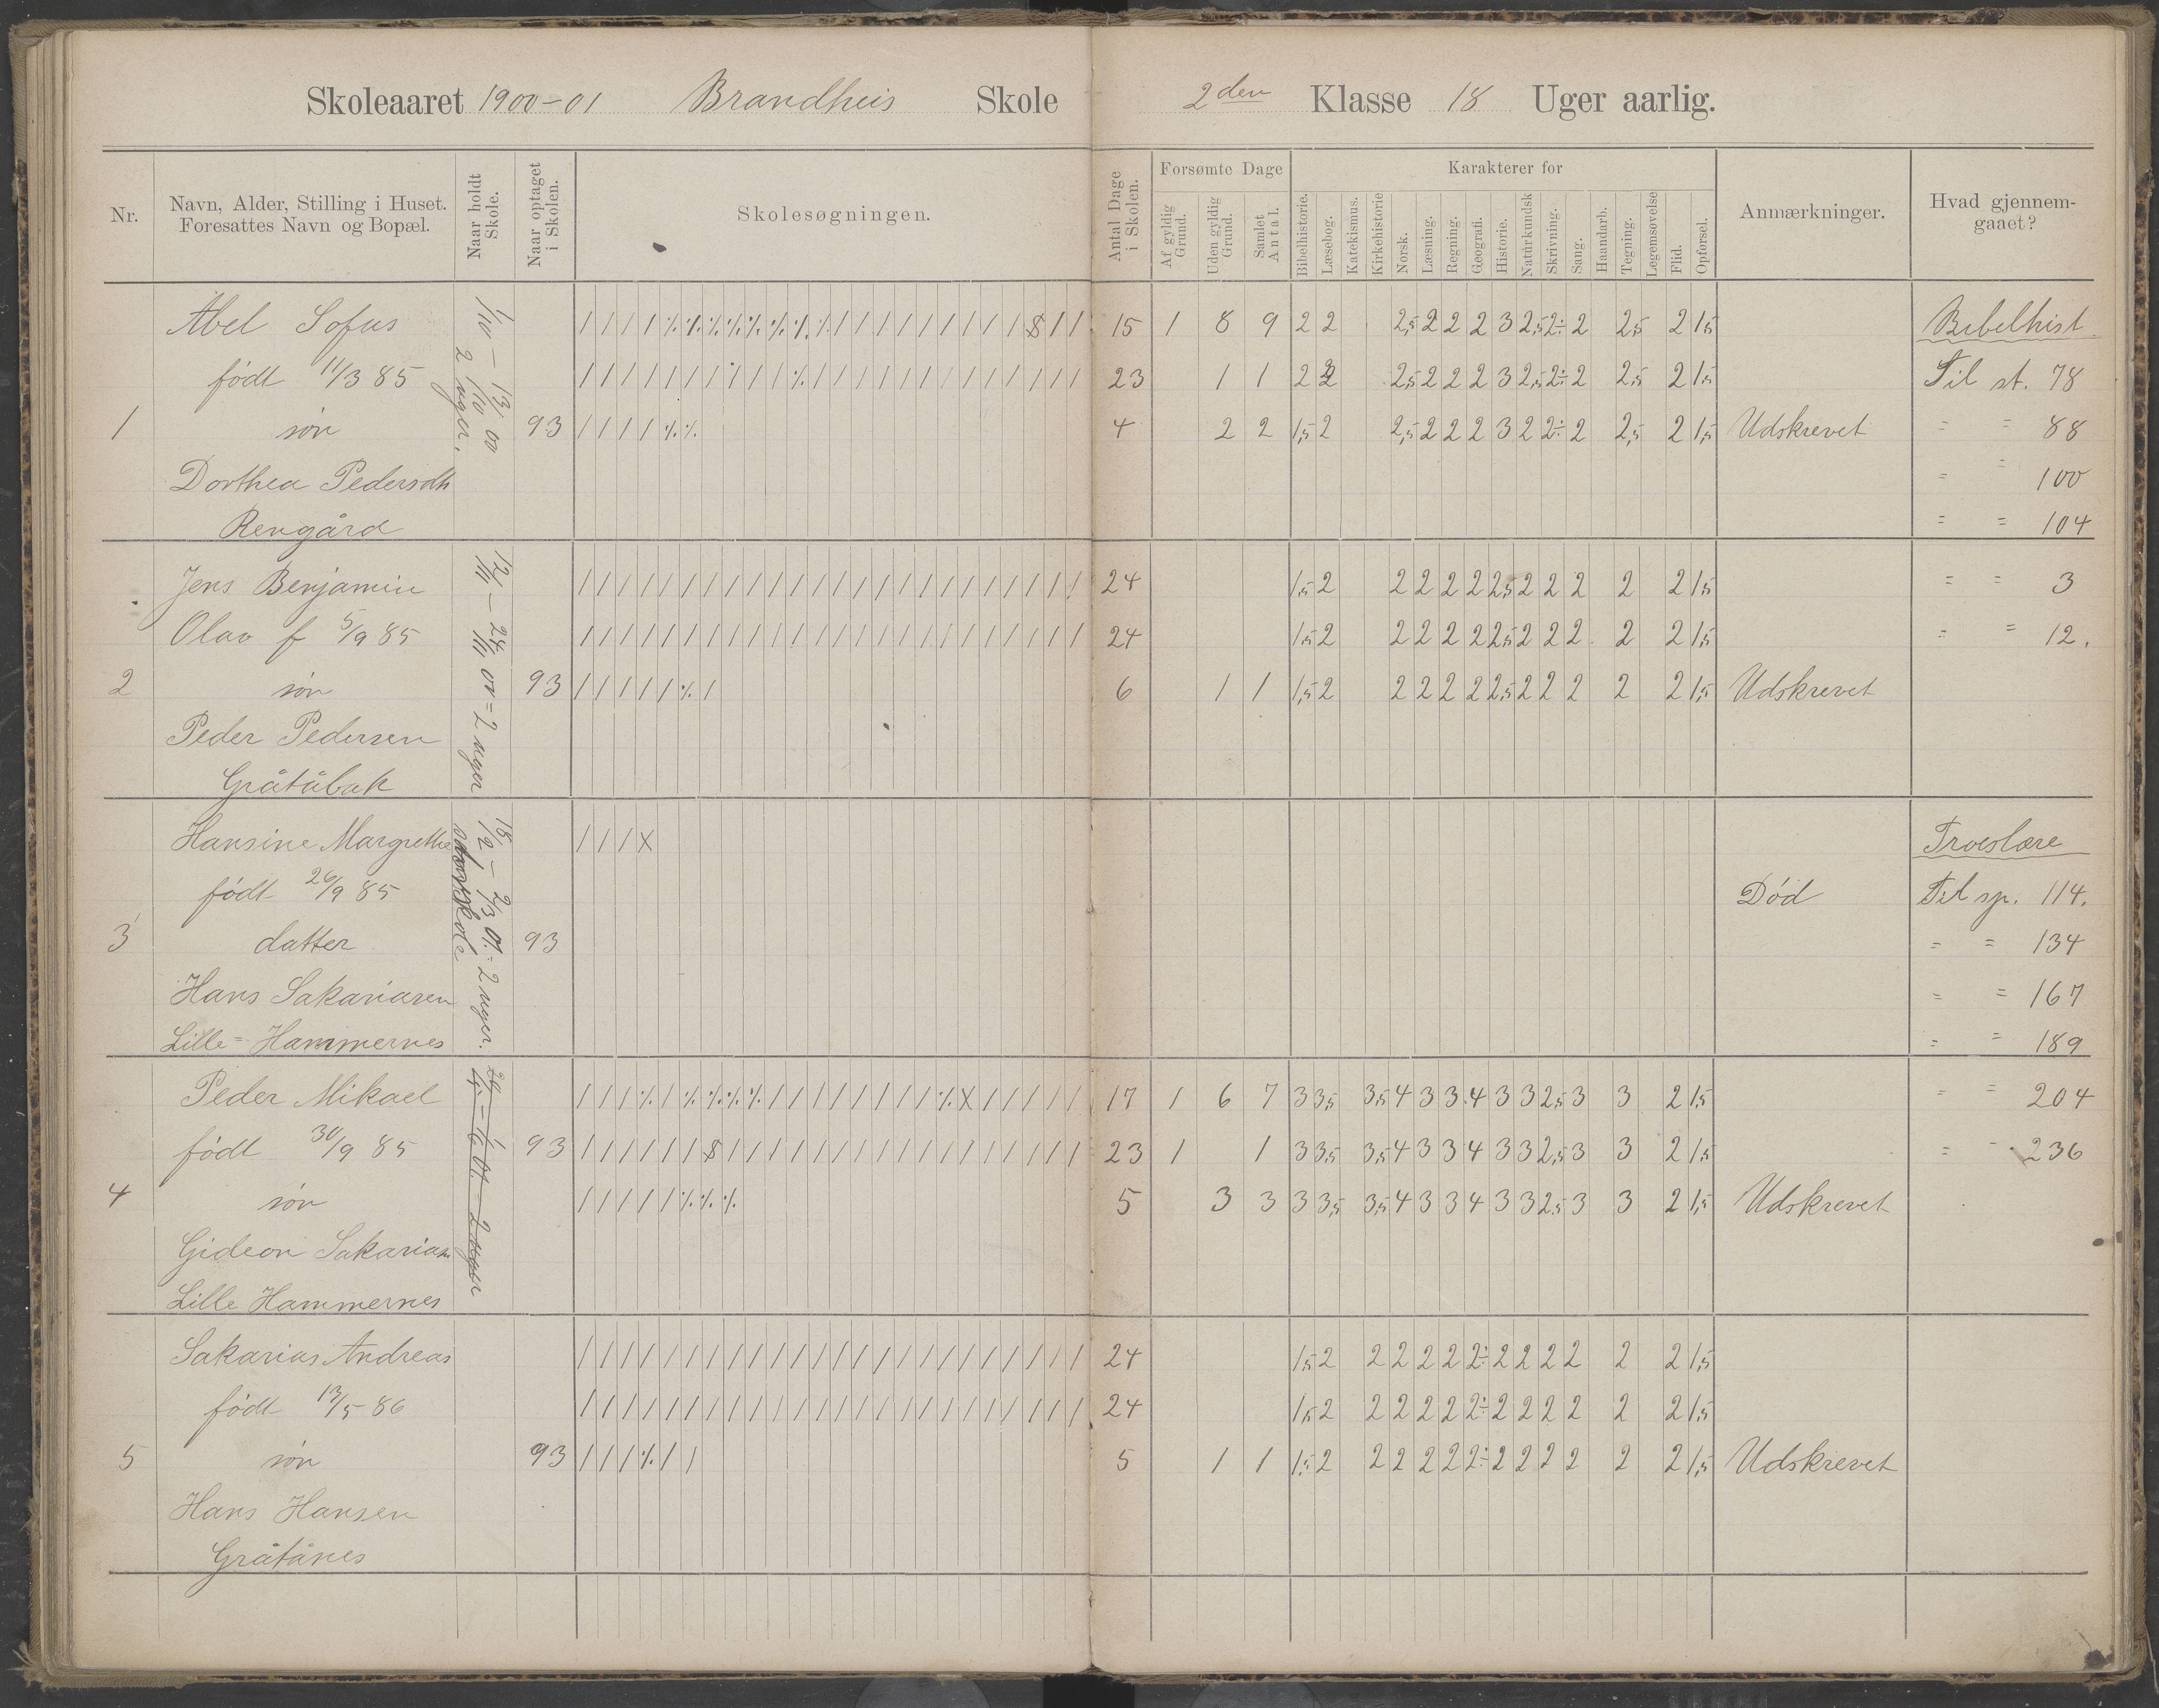 Skoleaaret 1900-01 Brandheis Skole 2den Klasse 18 Uger aarlig.
Nr.
Navn, Alder, Stilling i Huset. Foresattes Navn og Bopæl.
Naar holdt Skole.
Naar optaget i Skolen.
Skolesøgningen.
Antal Dage i Skolen.
Forsømte Dage
Af gyldig Grund.
Uden gyldig Grund.
Samlet Antal.
Karakterer for
Bibelhistorie.
Læsebog.
Katekismus.
Kirkehistorie
Norsk.
Læsning.
Regning.
Geografi.
Historie.
Naturkundsk
Skrivning.
Sang.
Haandarb.
Tegning.
Legemsøvelse
Flid.
Opførsel.
Anmærkninger.
Hvad gjennemgaaet?
1/10 - 13/10 00 2 uger.
Abel Sofus 15 1 8 9 2 2 2,5 2 2 2 3 2,5 2÷ 2 2,5 2 1,5 Bibelhist.
født 11/3 85 23 1 1 2 2 2,5 2 2 2 3 2,5 2÷ 2 2,5 2 1,5 Til st. 78
1 søn 93 4 2 2 1,5 2 2,5 2 2 2 3 2 2÷ 2 2,5 2 1,5 Udskrevet = = 88
Dorthea Pedersdtr = = 100
Rengård = = 104
12/11 - 24/11 00 = 2 uger
Jens Benjamin 24 1,5 2 2 2 2 2 2,5 2 2 2 2 2 1,5 = = 3
Olav f 5/9 85 24 1,5 2 2 2 2 2 2,5 2 2 2 2 2 1,5 = = 12.
2 søn 93 6 1 1 1,5 2 2 2 2 2 2,5 2 2 2 2 2 1,5 Udskrevet
Peder Pedersen
Gråtåbak
18/2 - 2/3 01. = 2 uger.
Hansine Margrethe / / / X Troeslære
født 26/9 85 Død Til sp. 114.
3 datter 93 = = 134
Hans Sakariasen = = 167
Lille=Hammernes = = 189
Peder Mikael 17 1 6 7 3 3,5 3,5 4 3 3 4 3 3 2,5 3 3 2 1,5 = = 204
født 30/9 85 93 23 1 1 3 3,5 3,5 4 3 3 4 3 3 2,5 3 3 2 1,5 = = 236
4 søn 5 3 3 3 3,5 3,5 4 3 3 4 3 3 2,5 3 3 2 1,5 Udskrevet
Gideon Sakarias
Lille Hammernes
Sakarias Andreas 24 1,5 2 2 2 2 2 2÷ 2 2 2 2 2 2 1,5
født 13/5 86 24 1,5 2 2 2 2 2 2÷ 2 2 2 2 2 2 1,5
5 søn 93 5 1 1 1,5 2 2 2 2 2 2÷ 2 2 2 2 2 2 1,5 Udskrevet
Hans Hansen
Gråtånes